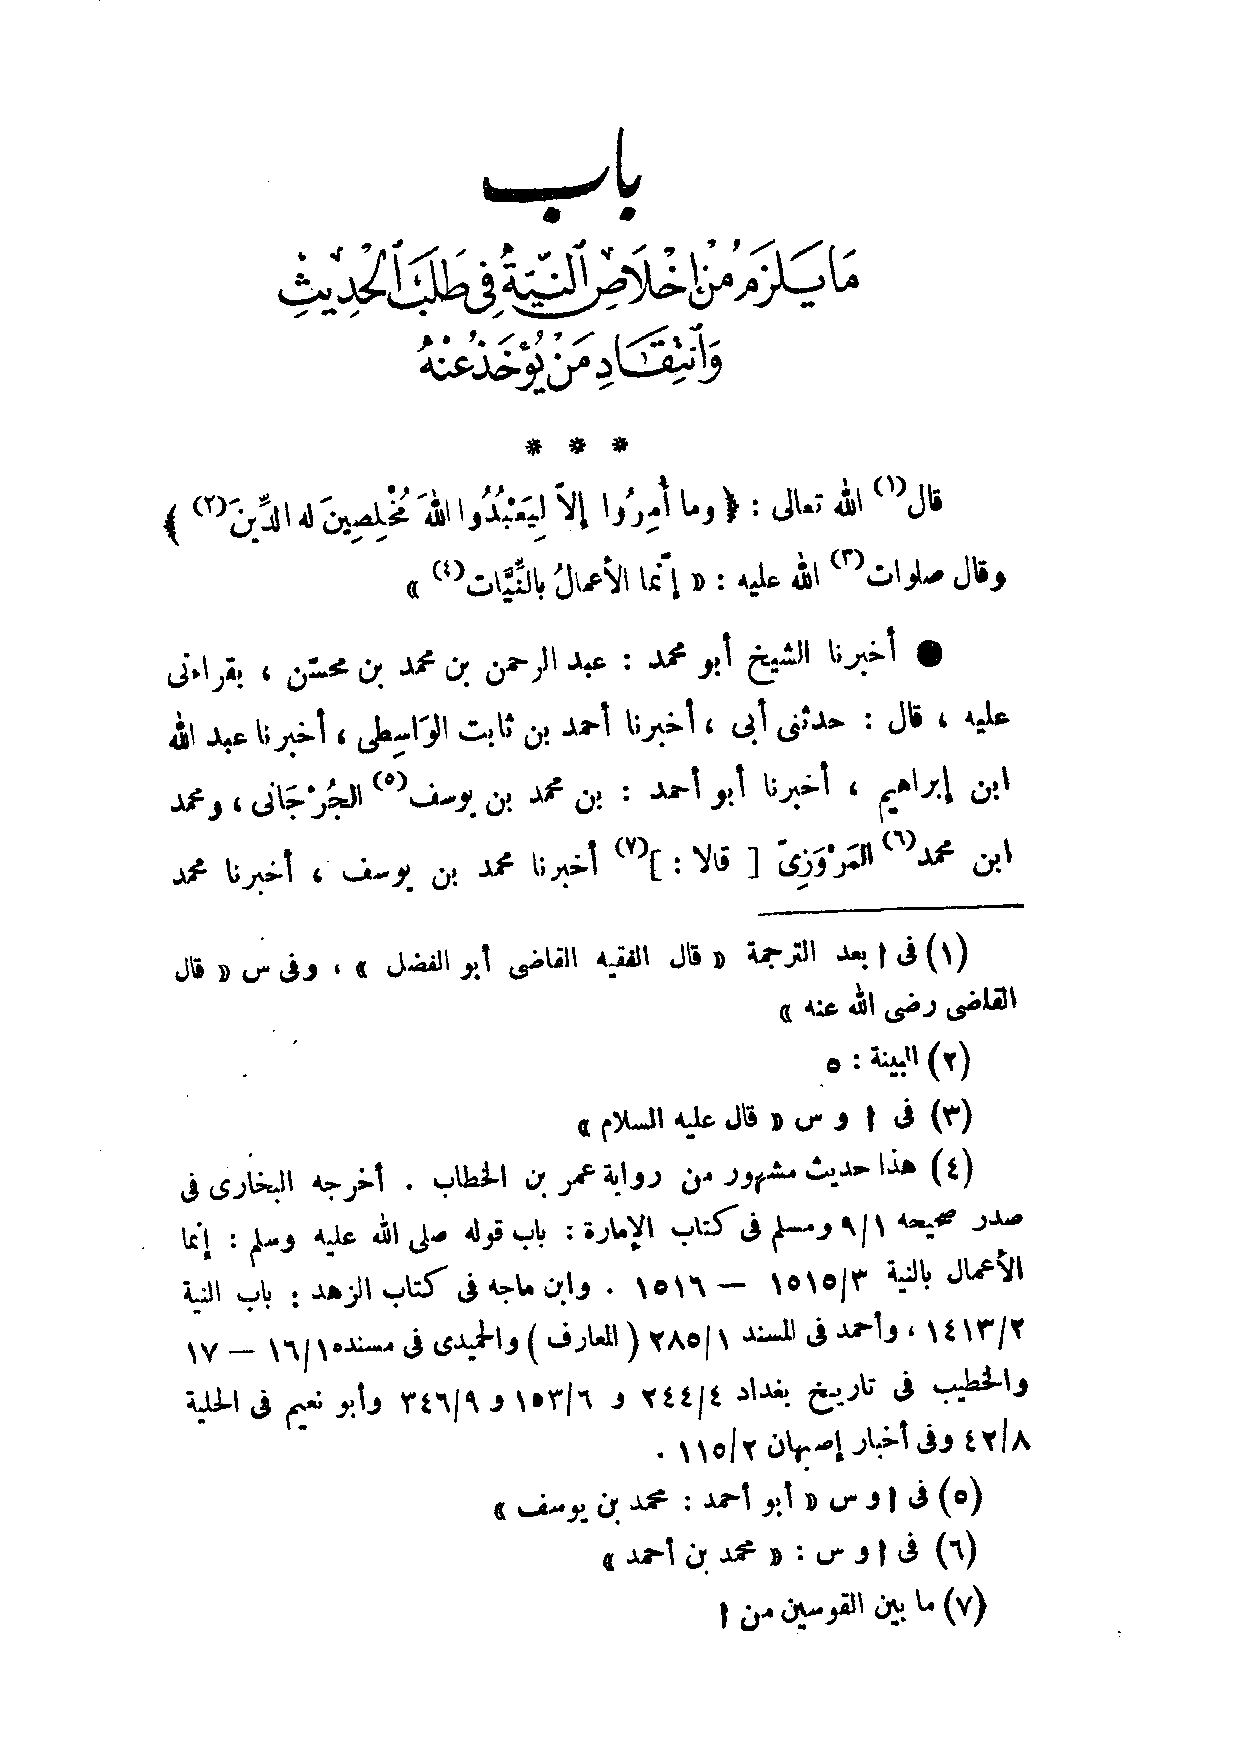 باب
مَا يَلزَمُ مِنْ إخْلَاصِ النِّيَّةِ فِي طَلَبِ الْحَدِيثِ
وَانْتِقَادِ مَنْ يُؤخَذُ عَنْهُ
* * *
قال(١) الله تعالى : ﴿ وما أُمِرُوا إلاّ لِيَعْبُدُوا اللهَ مُخْلِصِينَ له الدِّينَ(٢) ﴾
وقال صلوات(٣) الله عليه : « إنّما الأعمالُ بالنّيَّات(٤) »
● أخبرنا الشيخ أبو محمد : عبد الرحمن بن محمد بن محسّن ، بقراءتى
عليه ، قال : حدثنى أبى ، أخبرنا أحمد بن ثابت الوَاسِطى ، أخبرنا عبد الله
ابن إبراهيم ، أخبرنا أبو أحمد : بن محمد بن يوسف(٥) الجُرْجَانى ، ومحمد
ابن محمد(٦) المَرْوَزِىّ [ قالا : ](٧) أخبرنا محمد بن يوسف ، أخبرنا محمد
(١) فى ا بعد الترجمة « قال الفقيه القاضى أبو الفضل » ، وفى س « قال
القاضى رضى الله عنه »
(٢) البينة : ٥
(٣) فى ا و س « قال عليه السلام »
(٤) هذا حديث مشهور من رواية عمر بن الخطاب . أخرجه البخارى فى
صدر صحيحه ٩/١ ومسلم فى كتاب الإمارة : باب قوله صلى الله عليه وسلم : إنما
الأعمال بالنية ١٥١٥/٣ – ١٥١٦ . وابن ماجه فى كتاب الزهد : باب النية
١٤١٣/٢ ، وأحمد فى المسند ٢٨٥/١ ( المعارف ) والحميدى فى مسنده ١٦/١ – ١٧
والخطيب فى تاريخ بغداد ٢٤٤/٤ و ١٥٣/٦ و ٣٤٦/٩ وأبو نعيم فى الحلية
٤٢/٨ وفى أخبار إصبهان ١١٥/٢ .
(٥) فى ا و س « أبو أحمد : محمد بن يوسف »
(٦) فى ا و س : « محمد بن أحمد »
(٧) ما بين القوسين من ا